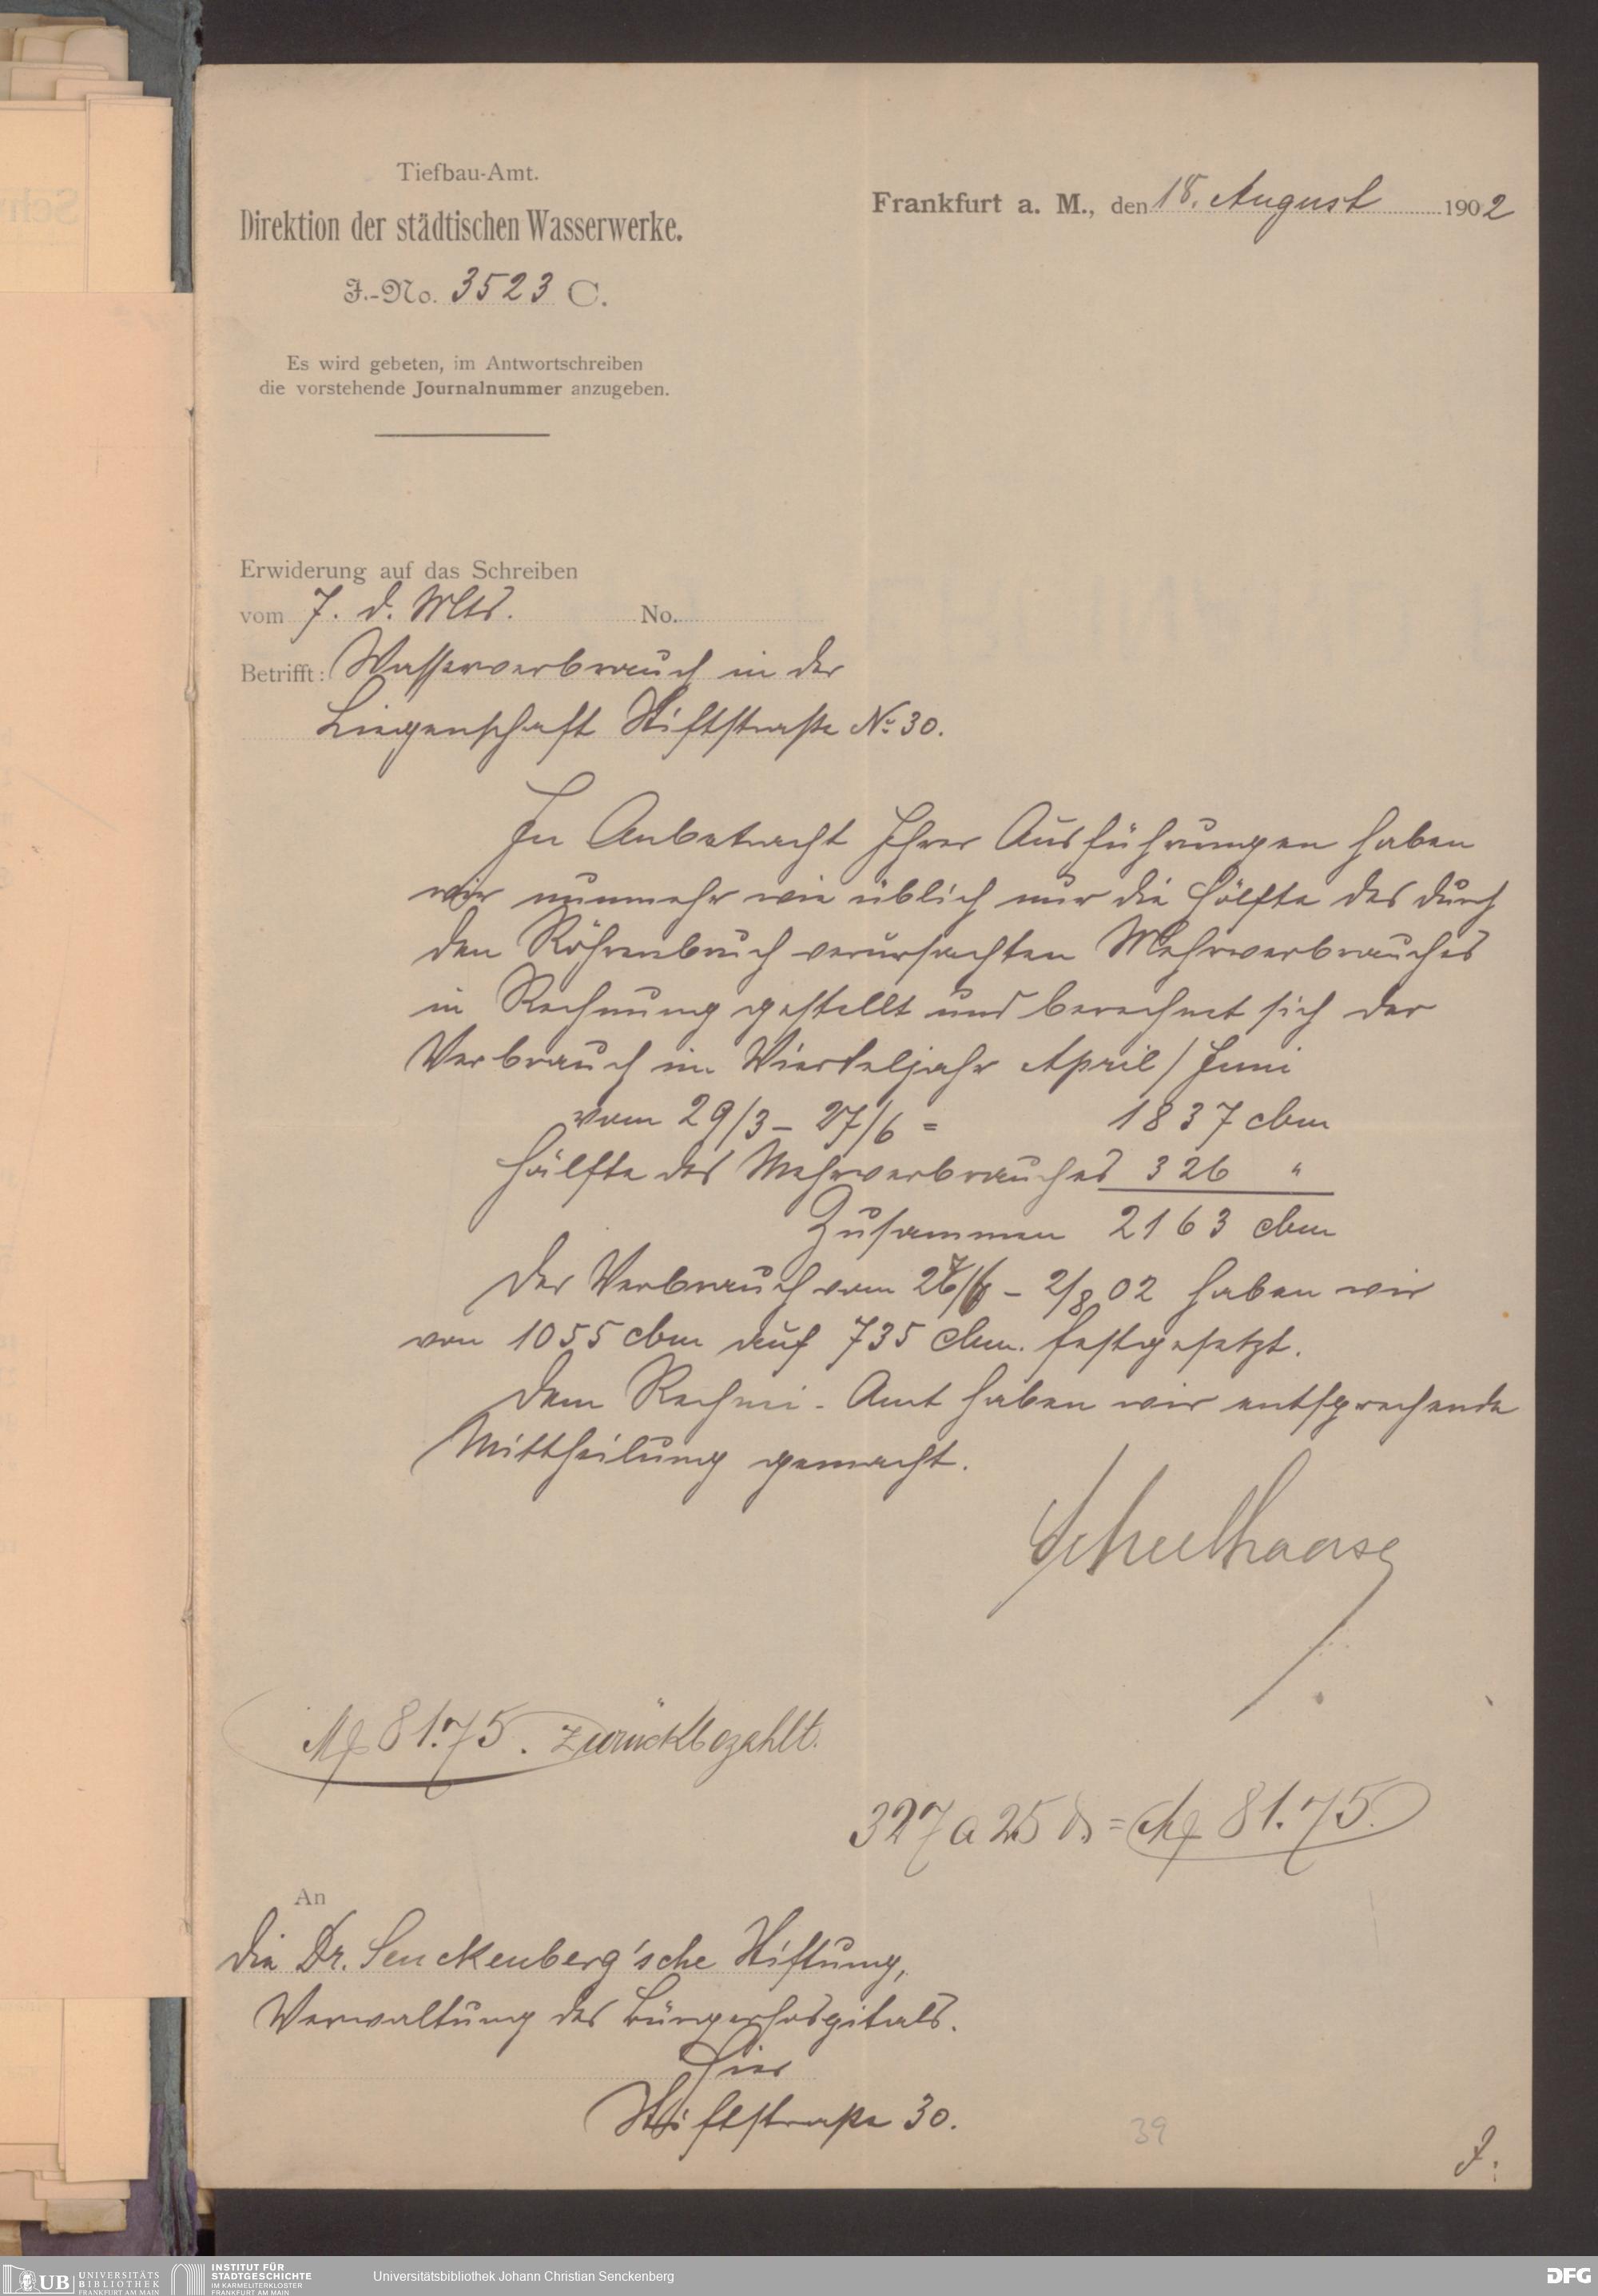 Tiefbau-Amt.
Direktion der städtischen Wasserwerke.
J.-No. 3523 C.
Es wird gebeten, im Antwortschreiben
die vorstehende Journalnummer anzugeben.
Frankfurt a. M., den 18. August 1902
Erwiderung auf das Schreiben
vom 7. d. Mts. No.
Betrifft: Wasserverbrauch in der
Liegenschaft Stiftstraße No 30.
In Anbetracht Ihrer Ausführungen haben
wir nunmehr wie üblich nur die Hälfte des durch
den Röhrenbruch verursachten Mehrverbrauches
in Rechnung gestellt und berechnet sich der
Verbrauch im Vierteljahr April/Juni
vom 29/3 – 27/6 = 1837 cbm
Hälfte des Mehrverbrauches 326 "
Zusammen 2163 cbm
Der Verbrauch vom – 2/8 02 haben wir
von 1055 cbm auf 735 cbm. festgesetzt.
Dem Rechnei-Amt haben wir entsprechende
Mittheilung gemacht.
Scheelhaase
M 81.75. zurückbezahlt.
327 a 25 d = M 81.75.
An
die Dr. Senckenberg'sche Stiftung,
Verwaltung des Bürgerhospitals.
Hier
Stiftstraße 30.
39
UB UNIVERSITÄTS
BIBLIOTHEK
FRANKFURT AM MAIN
INSTITUT FÜR
STADTGESCHICHTE
IM KARMELITERKLOSTER
FRANKFURT AM MAIN
Universitätsbibliothek Johann Christian Senckenberg
DFG